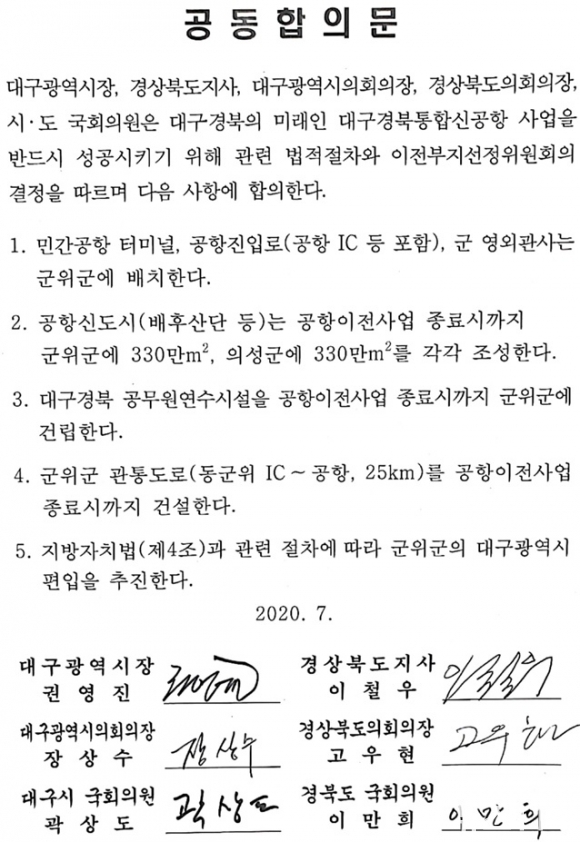 공동합의문
대구광역시장, 경상북도지사, 대구광역시의회의장, 경상북도의회의장,
시·도 국회의원은 대구·경북의 미래인 대구경북통합신공항 사업을
반드시 성공시키기 위해 관련 법적절차와 이전부지선정위원회의
결정을 따르며 다음 사항에 합의한다.
1. 민간공항 터미널, 공항진입로(공항 IC 등 포함), 군 영외관사는
군위군에 배치한다.
2. 공항신도시(배후산단 등)는 공항이전사업 종료시까지
군위군에 330만m², 의성군에 330만m²를 각각 조성한다.
3. 대구경북 공무원연수시설을 공항이전사업 종료시까지 군위군에
건립한다.
4. 군위군 관통도로(동군위 IC ~ 공항, 25km)를 공항이전사업
종료시까지 건설한다.
5. 지방자치법(제4조)과 관련 절차에 따라 군위군의 대구광역시
편입을 추진한다.
2020. 7.
대구광역시장 경상북도지사
권영진 이철우
대구광역시의회의장 경상북도의회의장
장상수 장상수 고우현 고우현
대구시 국회의원 경북도 국회의원
곽상도 곽상도 이만희 이만희